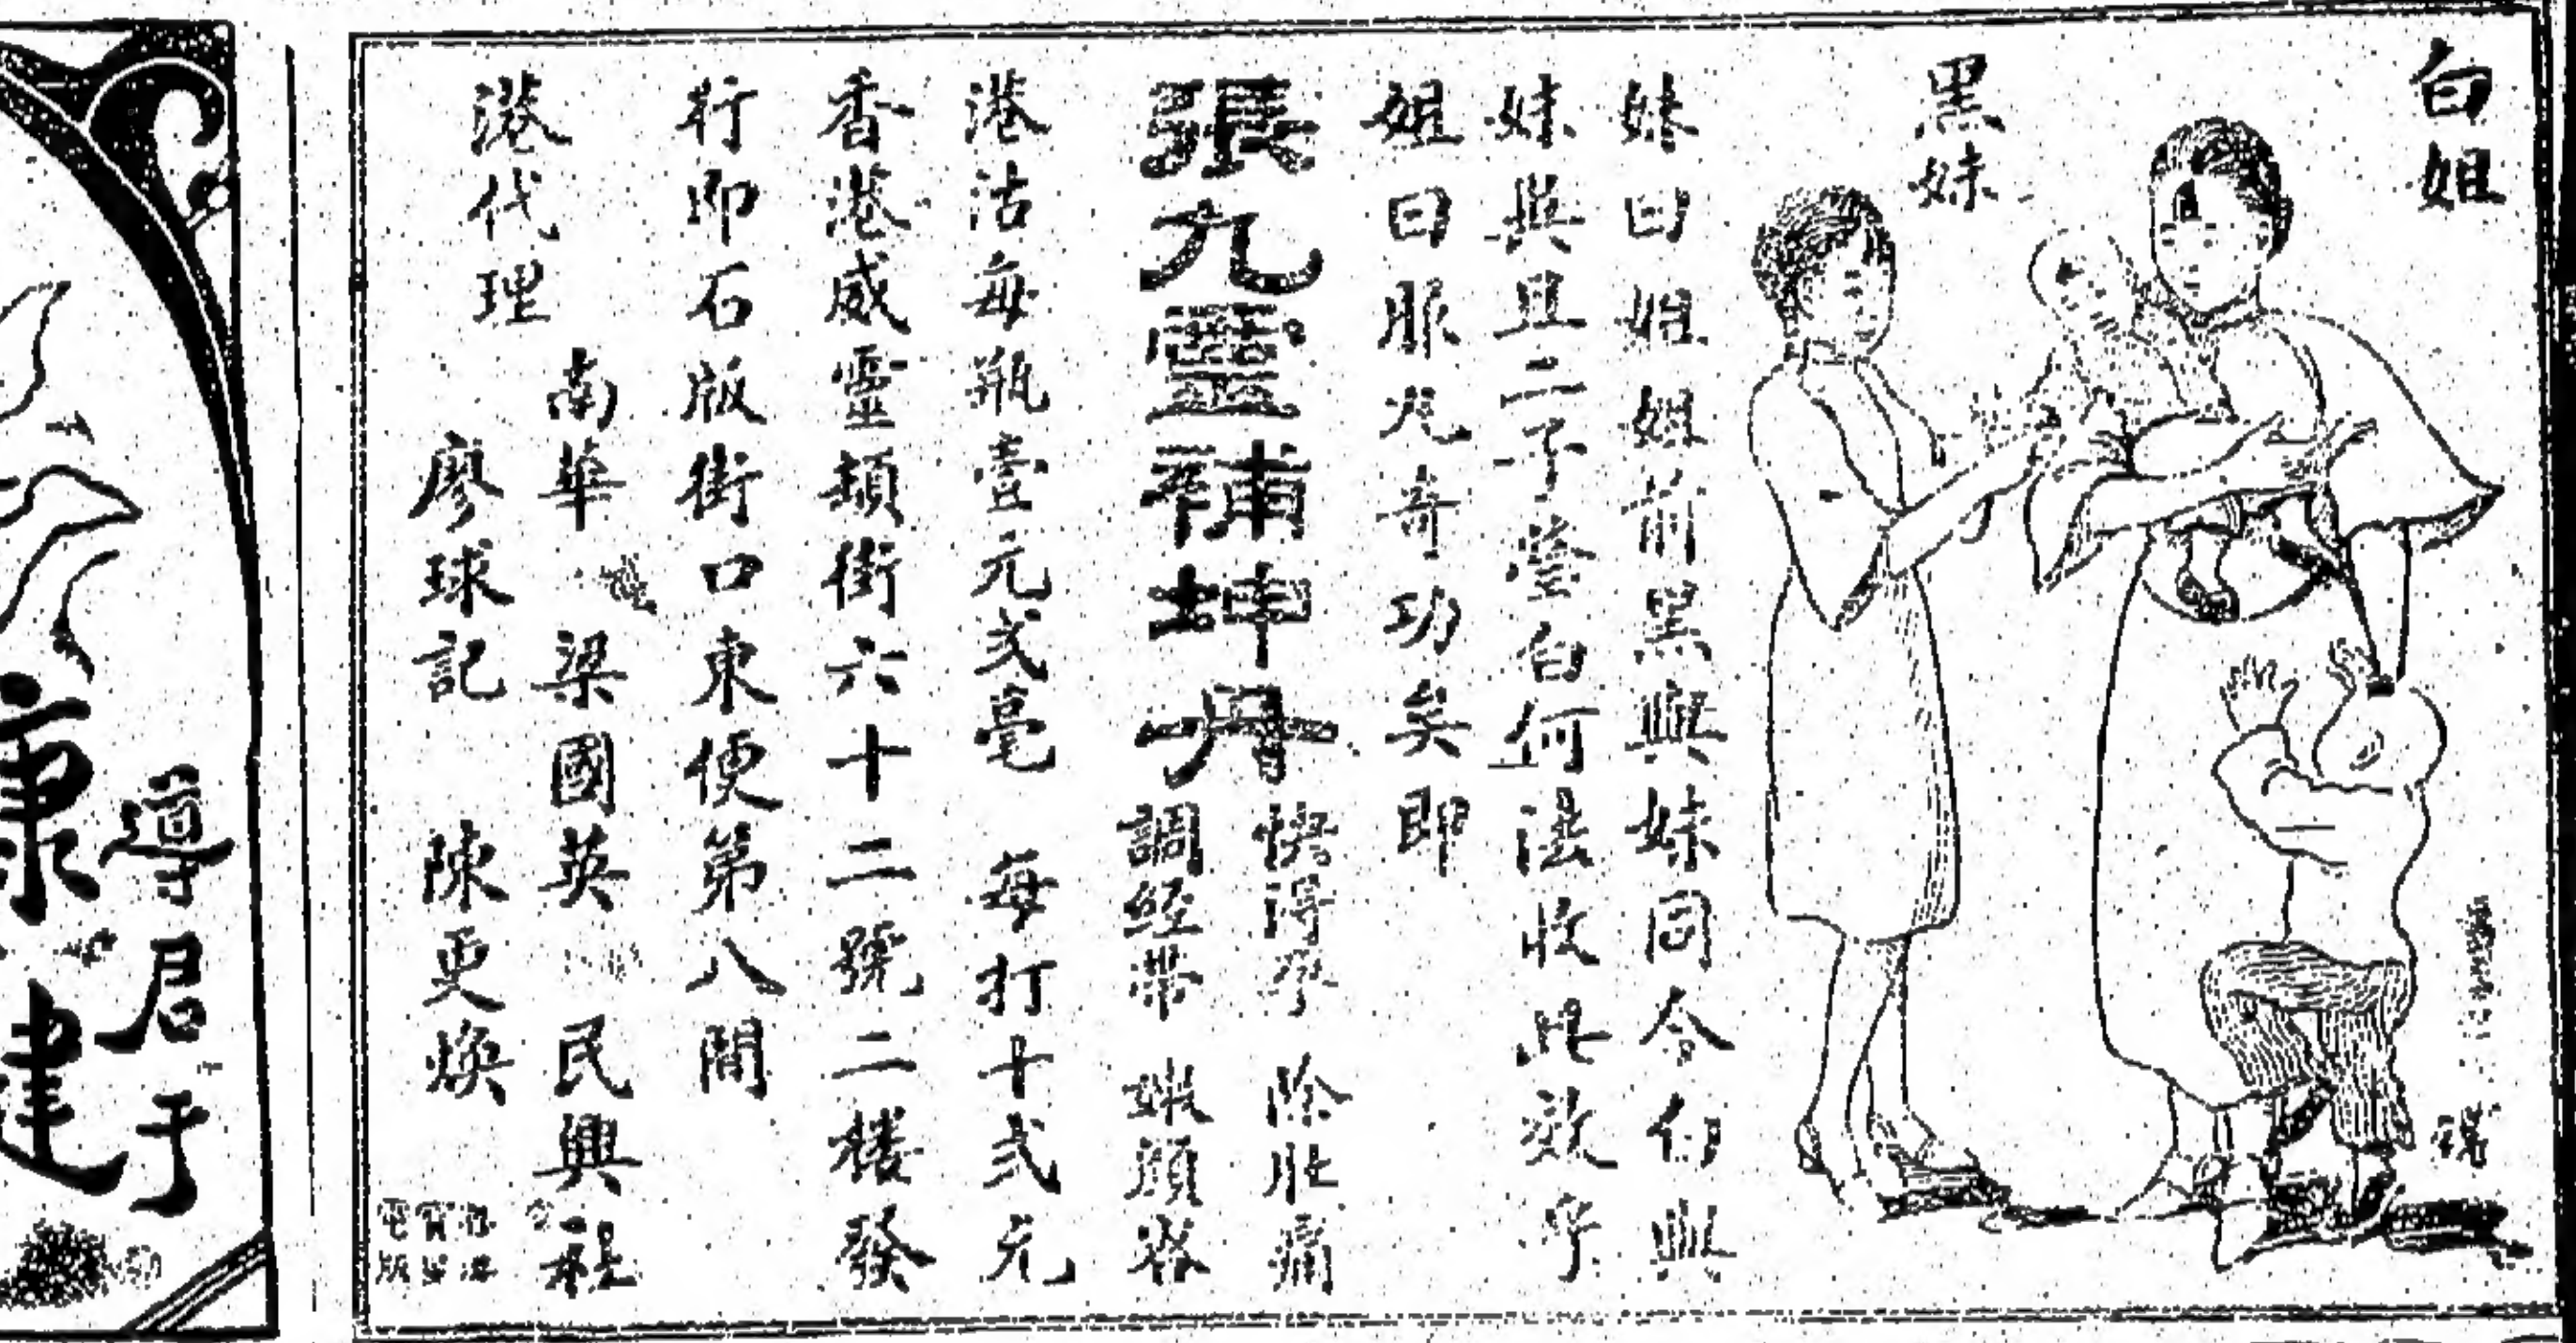 白姐
黑妹
妹曰姐姐前黑與妹同今白與
妹異且二子瑩白何法收此效乎
姐曰服尤奇功矣即
張九靈補坤丹
快得孕 除肚痛
調經帶 嫩顏容
港沽每瓶壹元弍毫 每打十弍元
香港威靈頓街六十二號二楼發
行即石版街口東便第八間
港代理
南華 梁國英 民興社
廖球記 陳更煥
導君于
康
建